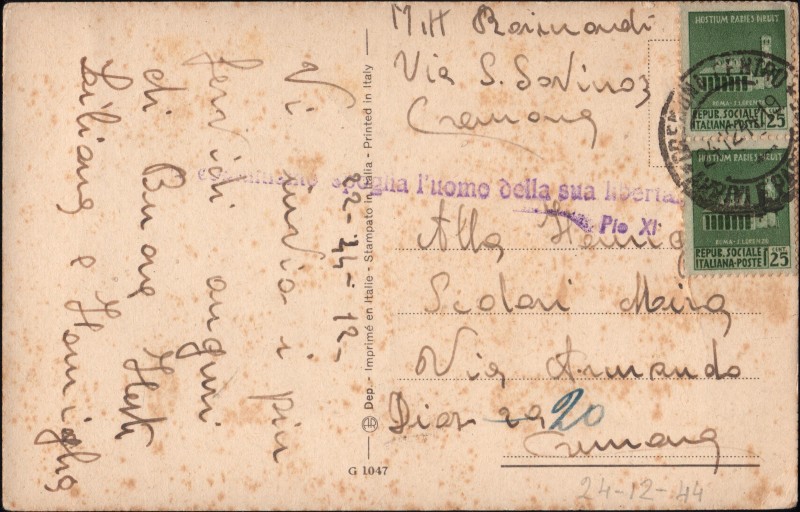 Mitt Raimondi
Via S. Savino 2
Cremona
HOSTIUM RABIES DIRUIT
ROMA - S. LORENZO
REPUB. SOCIALE
ITALIANA-POSTE
CENT. 25
HOSTIUM RABIES DIRUIT
ROMA - S. LORENZO
REPUB. SOCIALE
ITALIANA-POSTE
CENT. 25
CREMONA CENTRO
spoglia l'uomo della sua libertà
Pio XI
Alla
Scolari Maria
Via Armando
Diaz 29 20
Cremona
24-12-44
22-44-12-
Vi invio i più
fervidi auguri
di Buone Feste
Liliana e Famiglia
Dep. - Imprimé en Italie - Stampato in Italia - Printed in Italy
G 1047